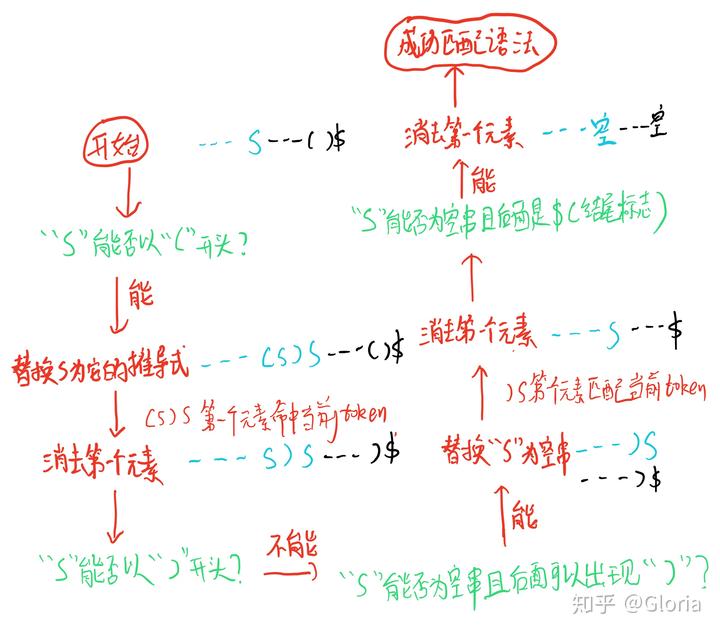 开始
--- S ---()$
“S”能否以“(”开头?
能
替换S为它的推导式 --- (S)S ---()$
(S)S 第一个元素命中当前token
消去第一个元素 ---- S)S ---)$
“S”能否以“)”开头?
不能
“S”能否为空串且后面可以出现“)”?
能
替换“S”为空串 ----)S
----)$
)S第一个元素匹配当前token
消去第一个元素 ---S ---$
“S”能否为空串且后面是$(结尾标志)
能
消去第一个元素 ---空 ---空
成功匹配语法
知乎 @Gloria